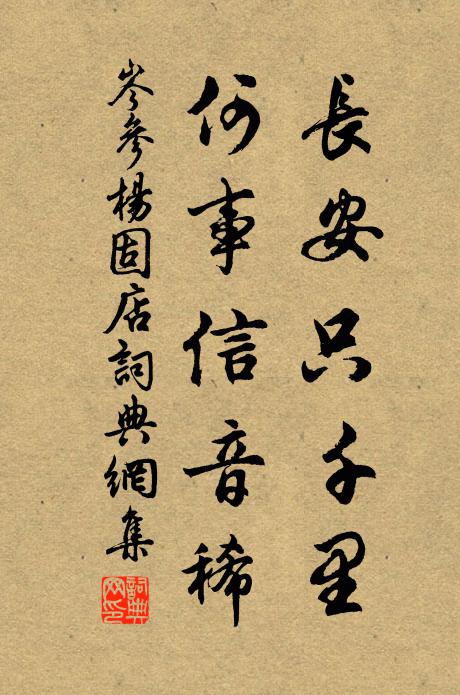 長安只千里
何事信音稀
岑參楊固店詞典網集
詞典
网印